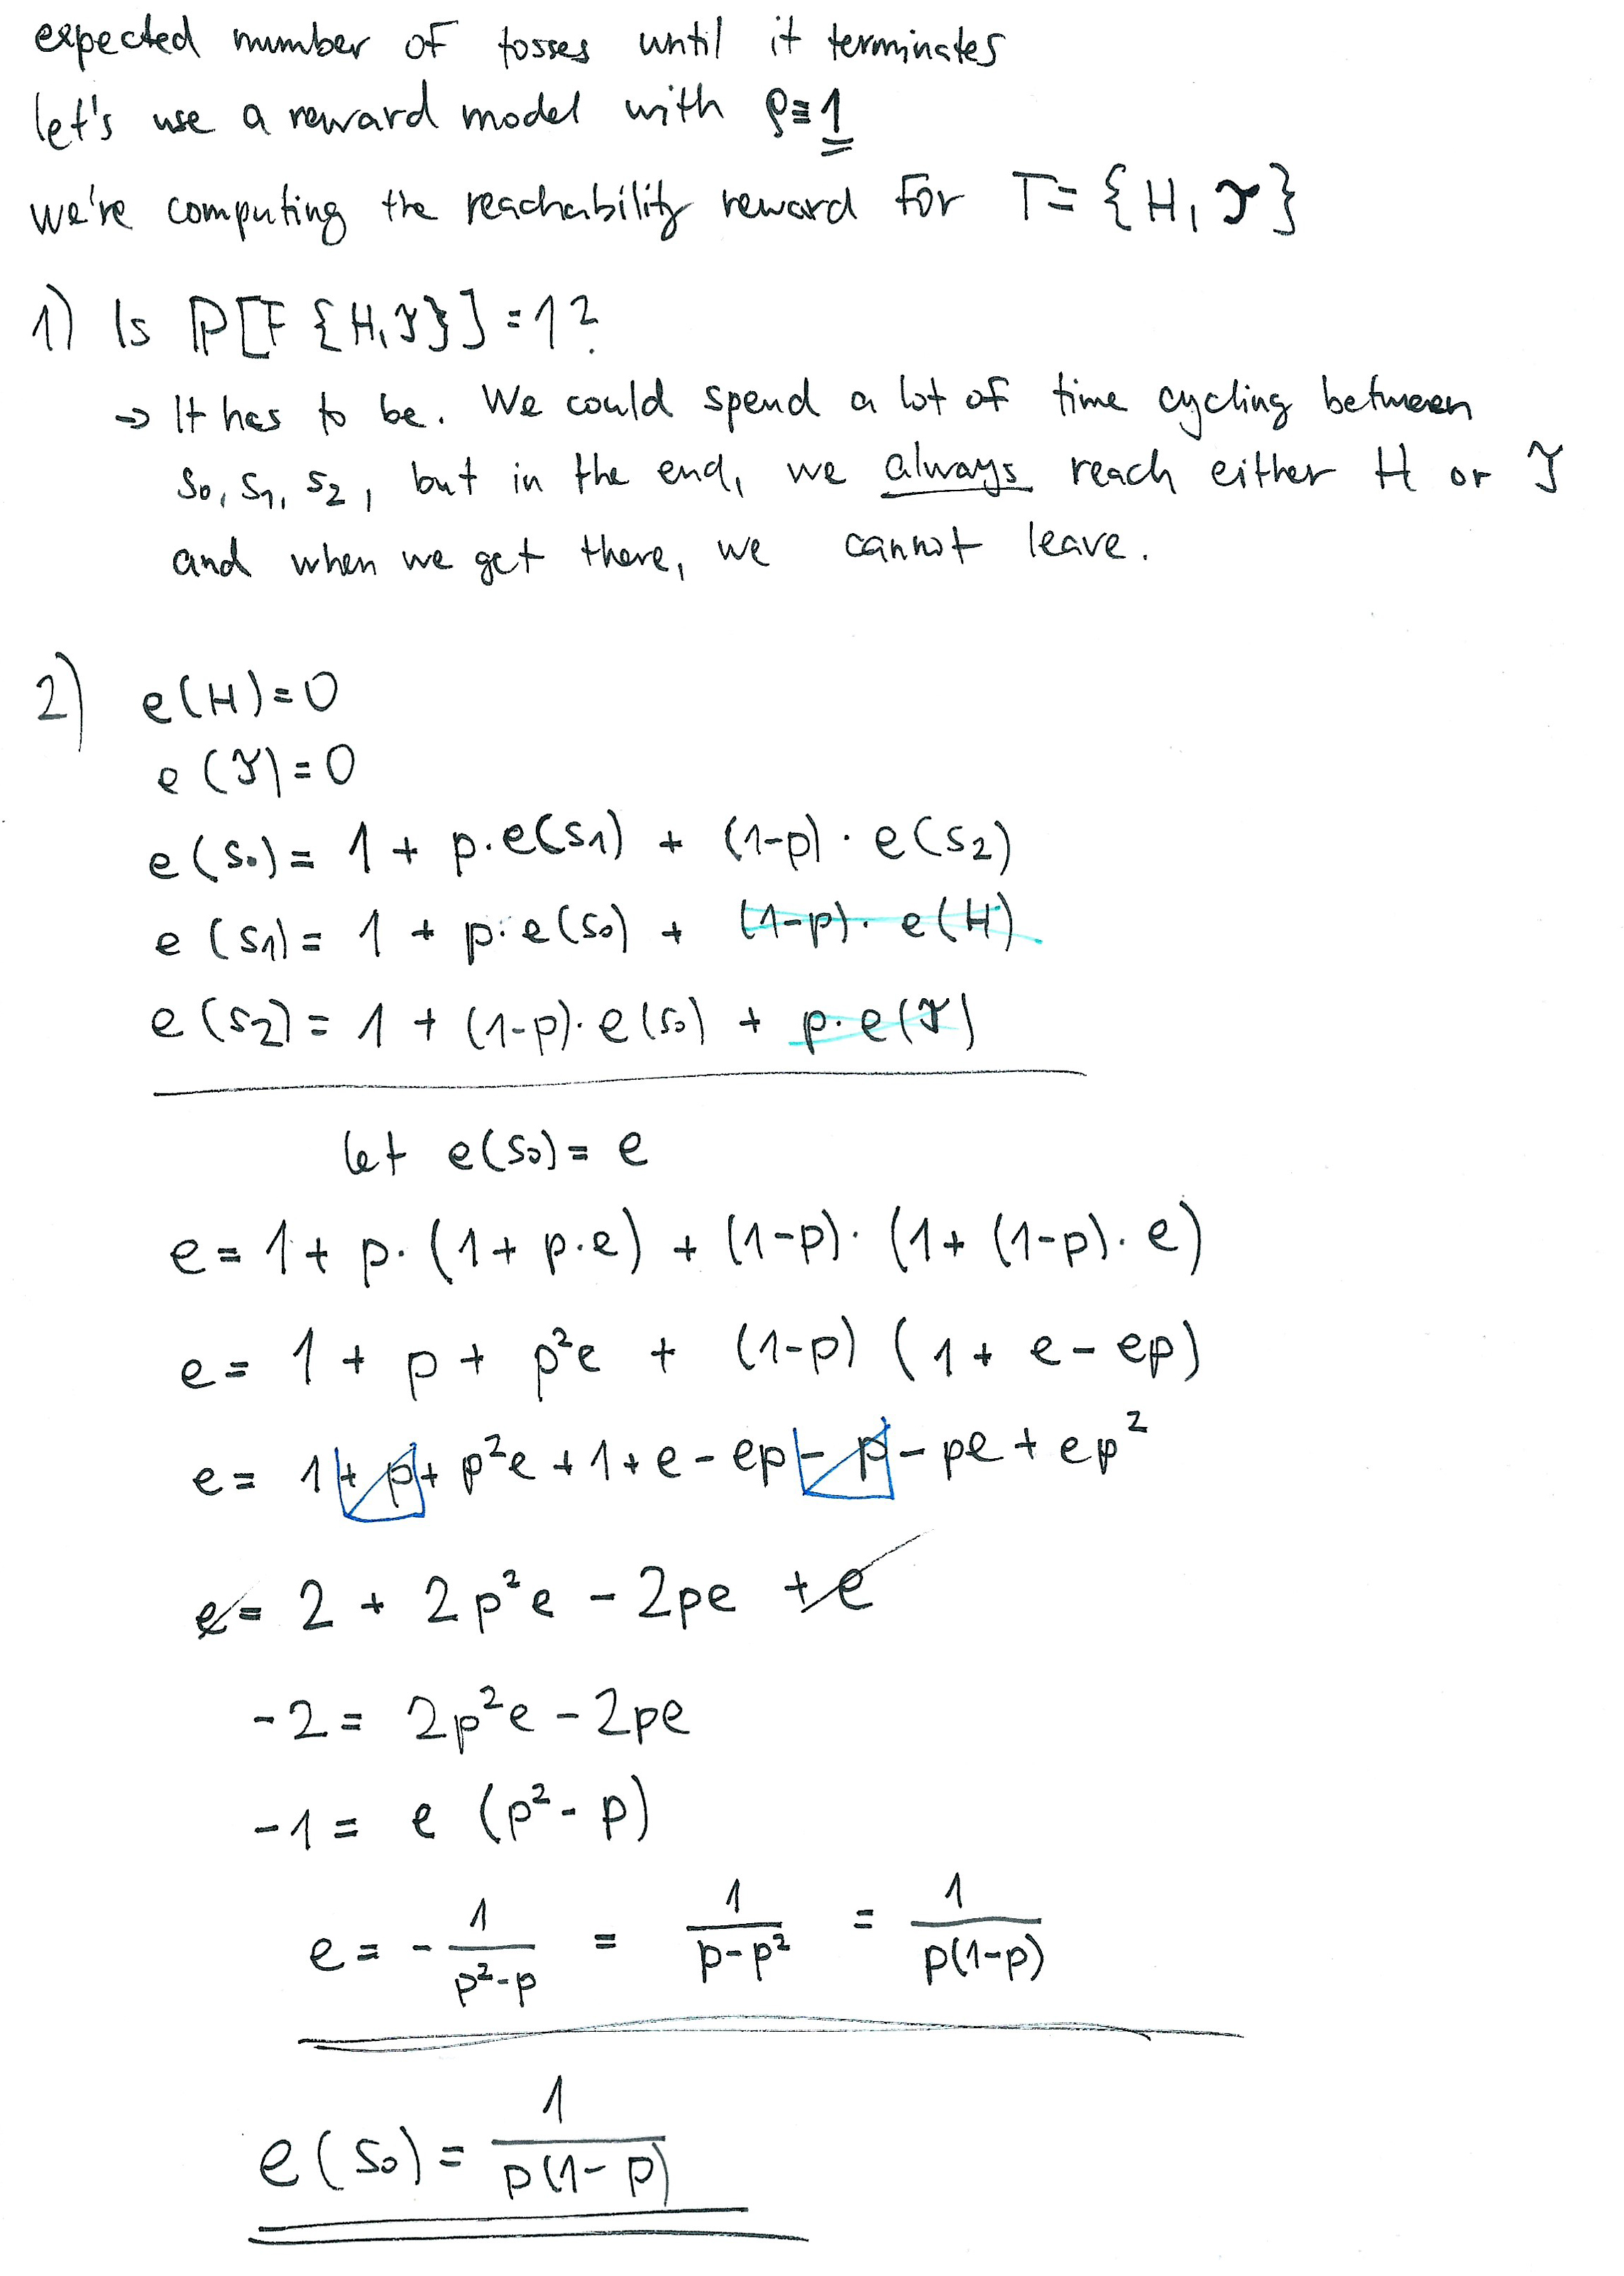 expected number of tosses until it terminates
let's use a reward model with ρ≡1
we're computing the reachability reward for T = {H, T}
1) Is ℙ[F {H, T}] = 1?
→ It has to be. We could spend a lot of time cycling between
s₀, s₁, s₂, but in the end, we always reach either H or T
and when we get there, we cannot leave.
2) e(H) = 0
e(T) = 0
e(s₀) = 1 + p·e(s₁) + (1-p)·e(s₂)
e(s₁) = 1 + p·e(s₀) + (1-p)·e(H)
e(s₂) = 1 + (1-p)·e(s₀) + p·e(T)
let e(s₀) = e
e = 1 + p·(1 + p·e) + (1-p)·(1 + (1-p)·e)
e = 1 + p + p²e + (1-p) (1 + e - ep)
e = 1 + p + p²e + 1 + e - ep - p - pe + ep²
e = 2 + 2p²e - 2pe + e
-2 = 2p²e - 2pe
-1 = e (p² - p)
e = - 1/(p²-p) = 1/(p-p²) = 1/(p(1-p))
e(s₀) = 1/(p(1-p))